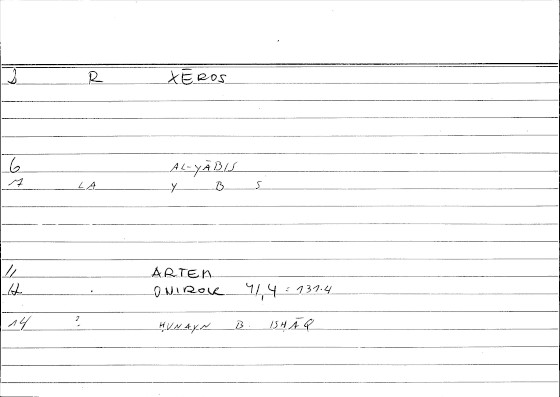 2 R XĒROS
6 AL-YĀBIS
7 LA Y B S
11 ARTEM
12 ONIROK 41,4 = 131.4
14 ? ḤUNAYN B. ISḤĀQ